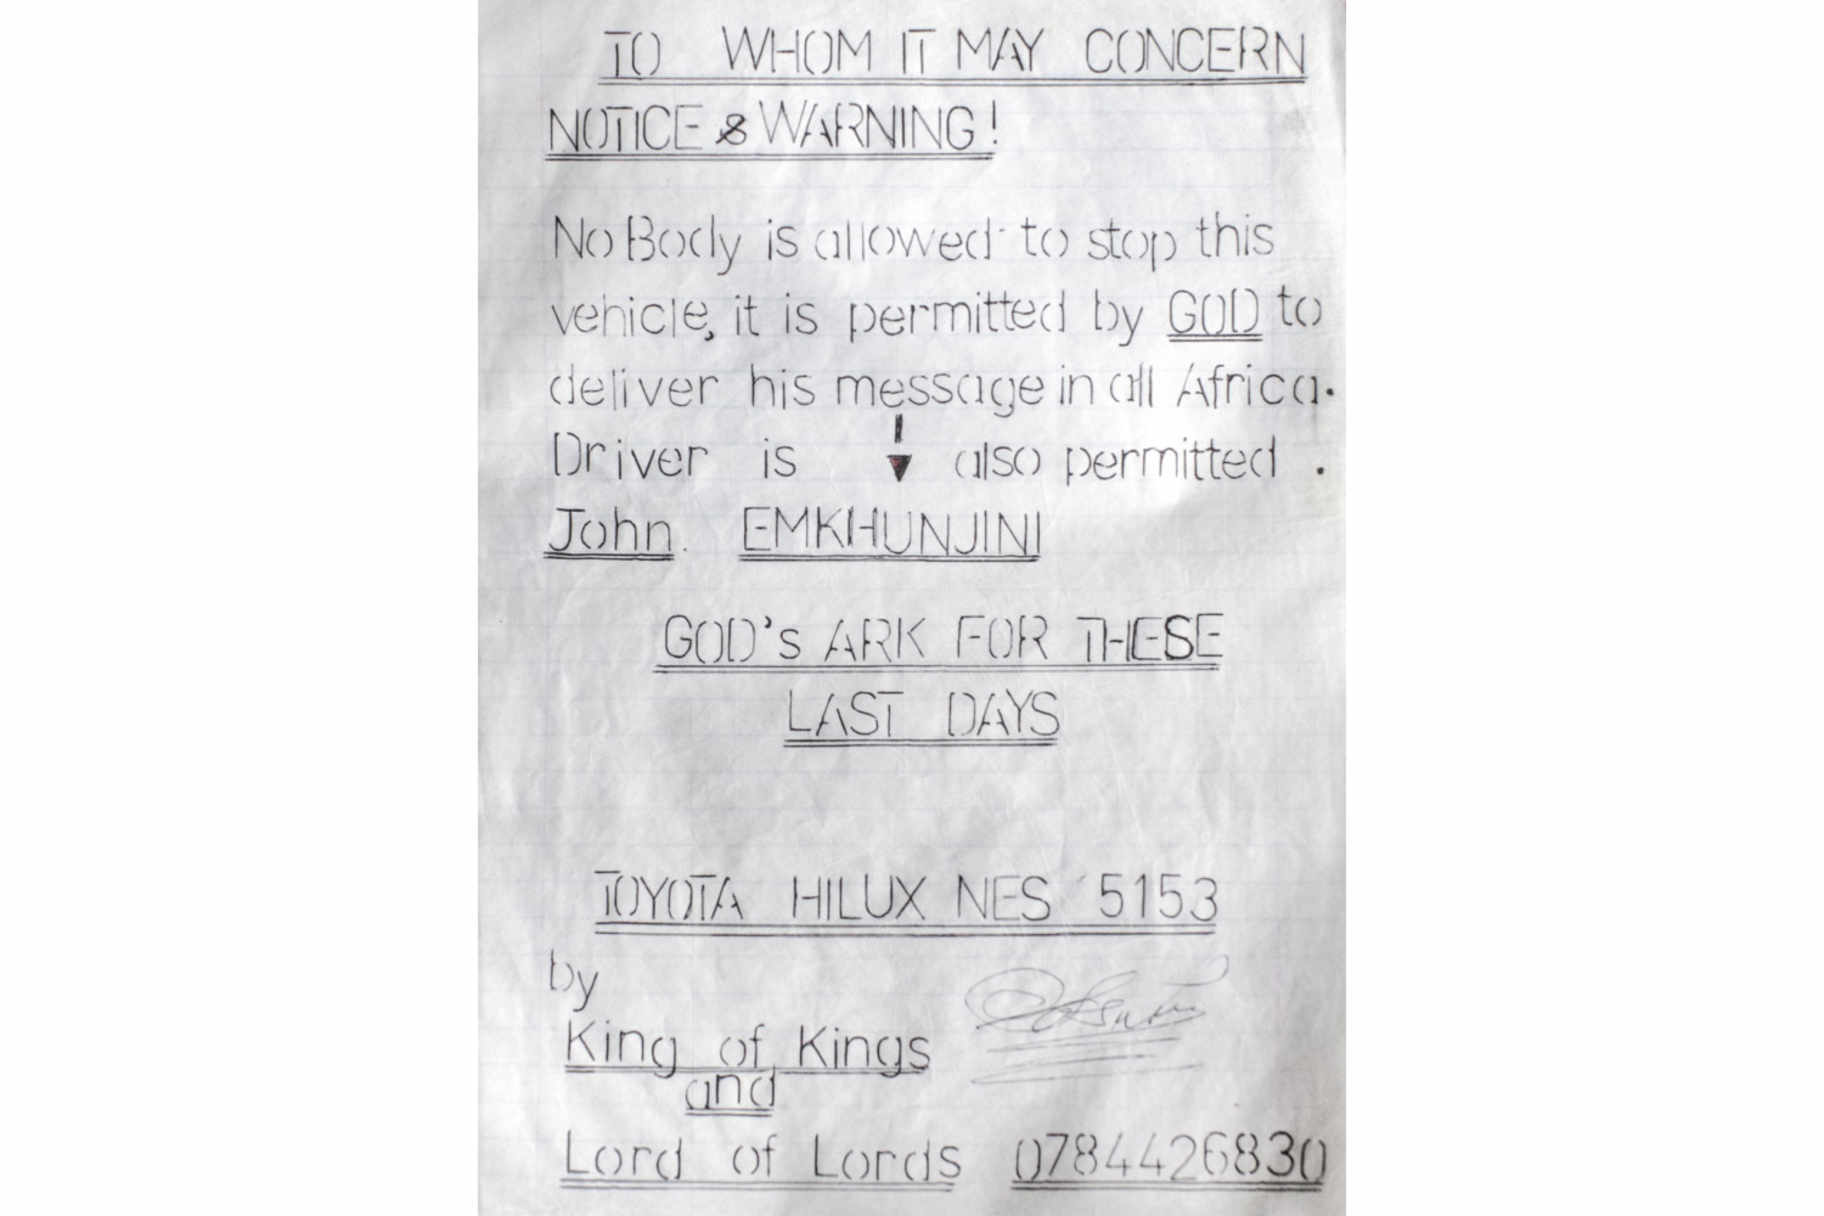 TO WHOM IT MAY CONCERN
NOTICE & WARNING!
No Body is allowed to stop this
vehicle, it is permitted by GOD to
deliver his message in all Africa.
Driver is also permitted .
John. EMKHUNJINI
GOD's ARK FOR THESE
LAST DAYS
TOYOTA HILUX NES 5153
by
King of Kings
and
Lord of Lords 0784426830